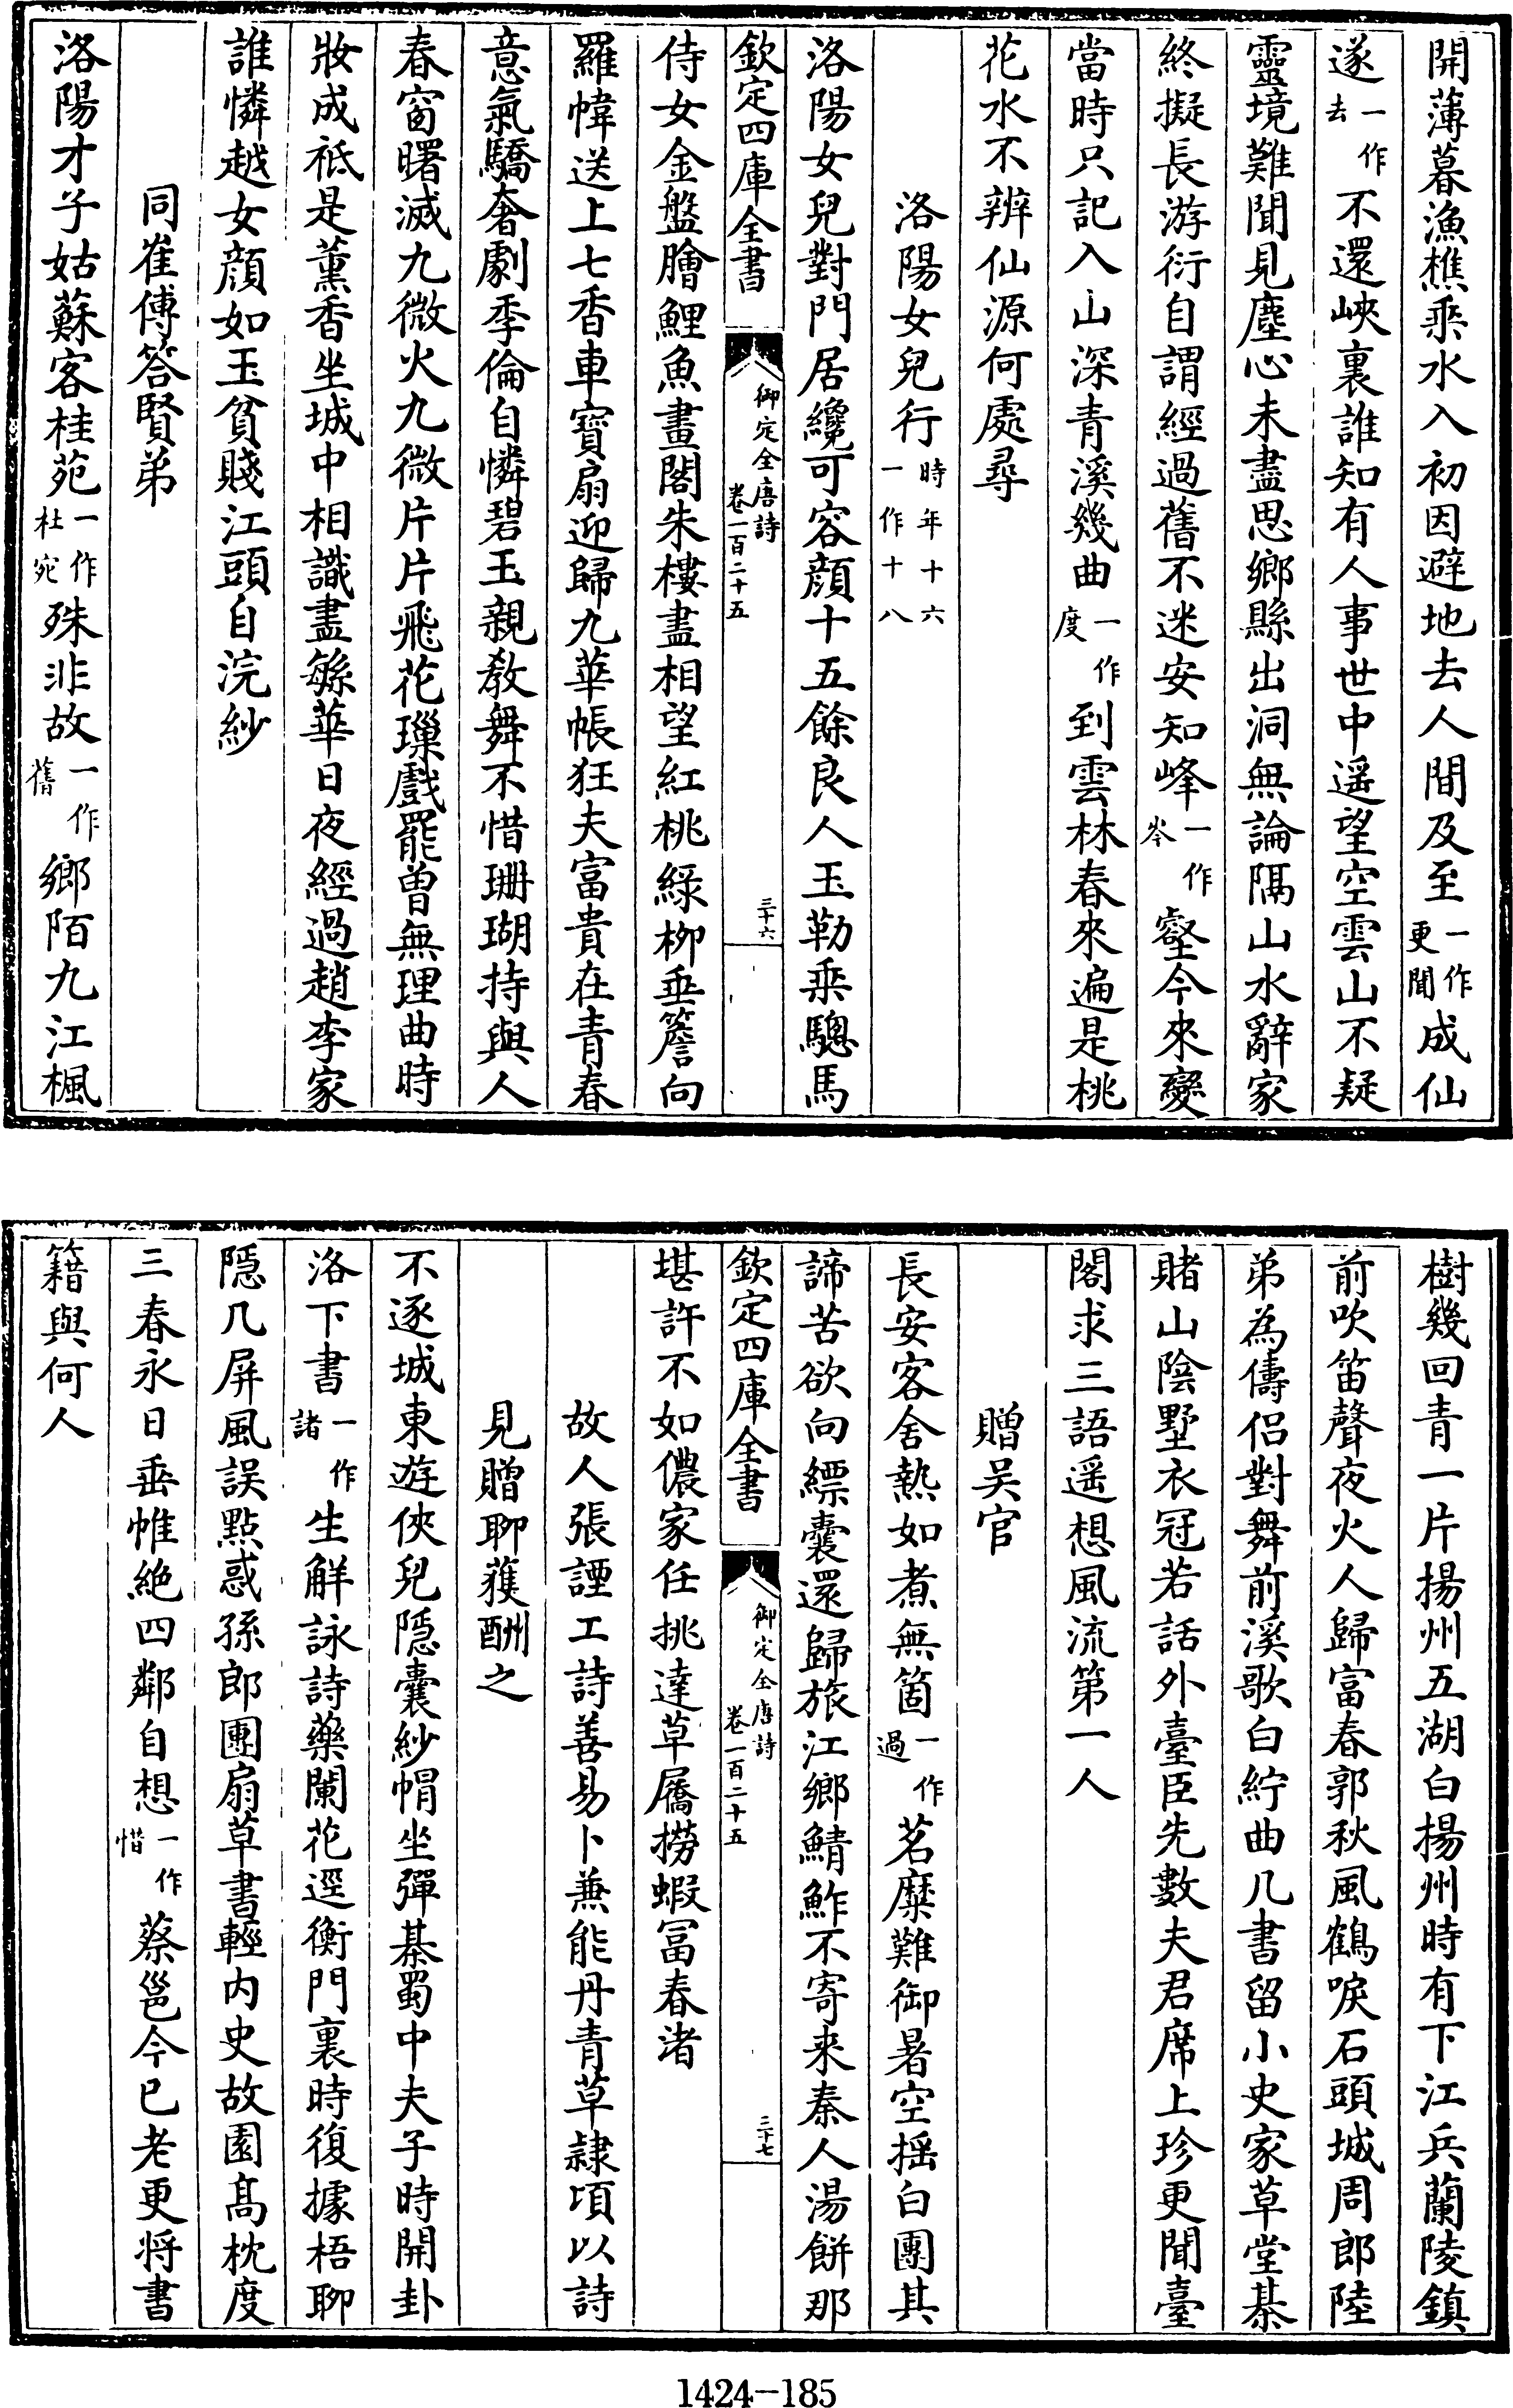 開薄暮漁樵乘水入初因避地去人間及至一作更聞成仙
遂一作去不還峽裏誰知有人事世中遥望空雲山不疑
靈境難聞見塵心未盡思鄉縣出洞無論隔山水辭家
終擬長游衍自謂經過舊不迷安知峰一作岑壑今來變
當時只記入山深青溪幾曲一作度到雲林春來遍是桃
花水不辨仙源何處尋
洛陽女兒行時年十六一作十八
洛陽女兒對門居纔可容顔十五餘良人玉勒乘驄馬
欽定四庫全書
御定全唐詩
卷一百二十五
三十六
侍女金盤膾鯉魚畫閣朱樓盡相望紅桃緑柳垂簷向
羅幃送上七香車寶扇迎歸九華帳狂夫富貴在青春
意氣驕奢劇季倫自憐碧玉親教舞不惜珊瑚持與人
春窗曙滅九微火九微片片飛花璅戲罷曽無理曲時
妝成祗是薰香坐城中相識盡緐華日夜經過趙李家
誰憐越女顔如玉貧賤江頭自浣紗
同崔傅答賢弟
洛陽才子姑蘇客桂苑一作杜宛殊非故一作舊鄉陌九江楓
樹幾回青一片揚州五湖白揚州時有下江兵蘭陵鎮
前吹笛聲夜火人歸富春郭秋風鶴唳石頭城周郎陸
弟為儔侣對舞前溪歌白紵曲几書留小史家草堂棊
賭山陰墅衣冠若話外臺臣先數夫君席上珍更聞臺
閣求三語遥想風流第一人
贈吴官
長安客舍熱如煮無箇一作過茗糜難御暑空揺白團其
諦苦欲向縹囊還歸旅江鄉鯖鮓不寄来秦人湯餅那
欽定四庫全書
御定全唐詩
卷一百二十五
三十七
堪許不如儂家任挑達草屩撈蝦冨春渚
故人張諲工詩善易卜兼能丹青草隷項以詩
見贈聊獲酬之
不逐城東遊俠兒隱囊紗帽坐彈棊蜀中夫子時開卦
洛下書一作諸生解詠詩藥闌花逕衡門裏時復據梧聊
隱几屏風誤點惑孫郎團扇草書輕内史故園髙枕度
三春永日垂帷絶四鄰自想一作惜蔡邕今已老更将書
籍與何人
1424-185